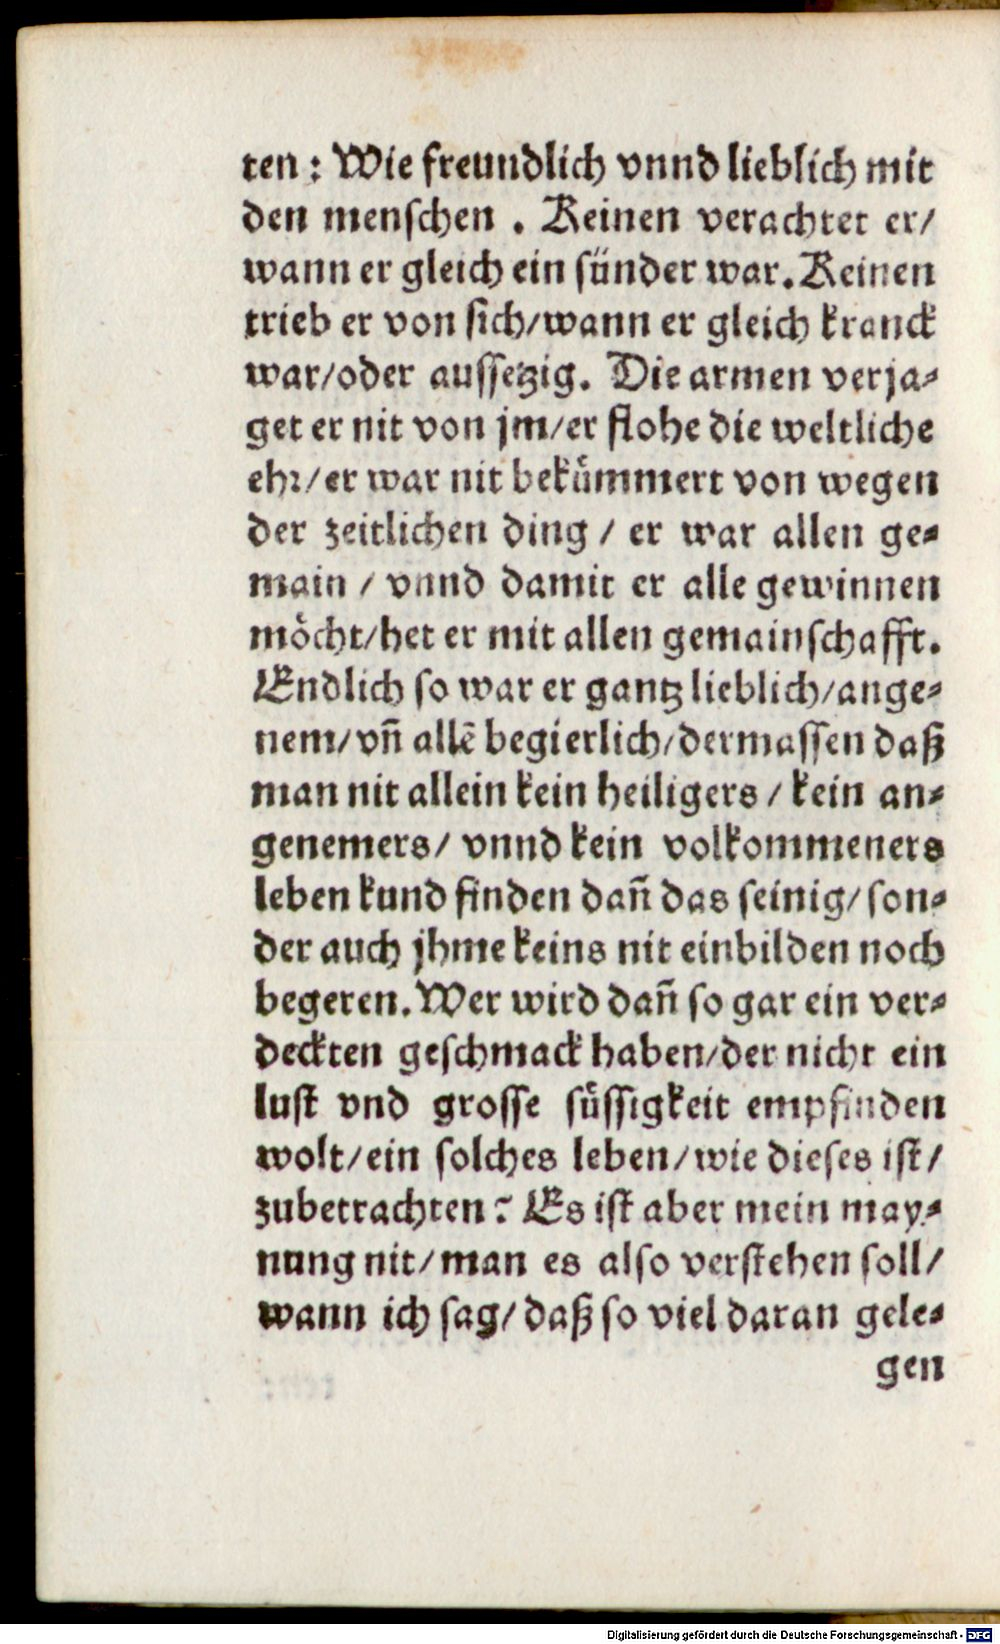 ten : Wie freundlich vnnd lieblich mit
den menschen . Keinen verachtet er/
wann er gleich ein sünder war. Keinen
trieb er von sich/wann er gleich kranck
war/oder aussetzig. Die armen verja⸗
get er nit von jm/er flohe die weltliche
ehr/er war nit bekümmert von wegen
der zeitlichen ding / er war allen ge⸗
main / vnnd damit er alle gewinnen
möcht/het er mit allen gemainschafft.
Endlich so war er gantz lieblich/ange⸗
nem/vn̄ allē begierlich/dermassen daß
man nit allein kein heiligers / kein an⸗
genemers/ vnnd kein volkommeners
leben kund finden dan̄ das seinig/son⸗
der auch jhme keins nit einbilden noch
begeren. Wer wird dan̄ so gar ein ver⸗
deckten geschmack haben/der nicht ein
lust vnd grosse süssigkeit empfinden
wolt/ein solches leben/wie dieses ist/
zubetrachten? Es ist aber mein may⸗
nung nit/man es also verstehen soll/
wann ich sag/daß so viel daran gele⸗
gen
Digitalisierung gefördert durch die Deutsche Forschungsgemeinschaft - DFG